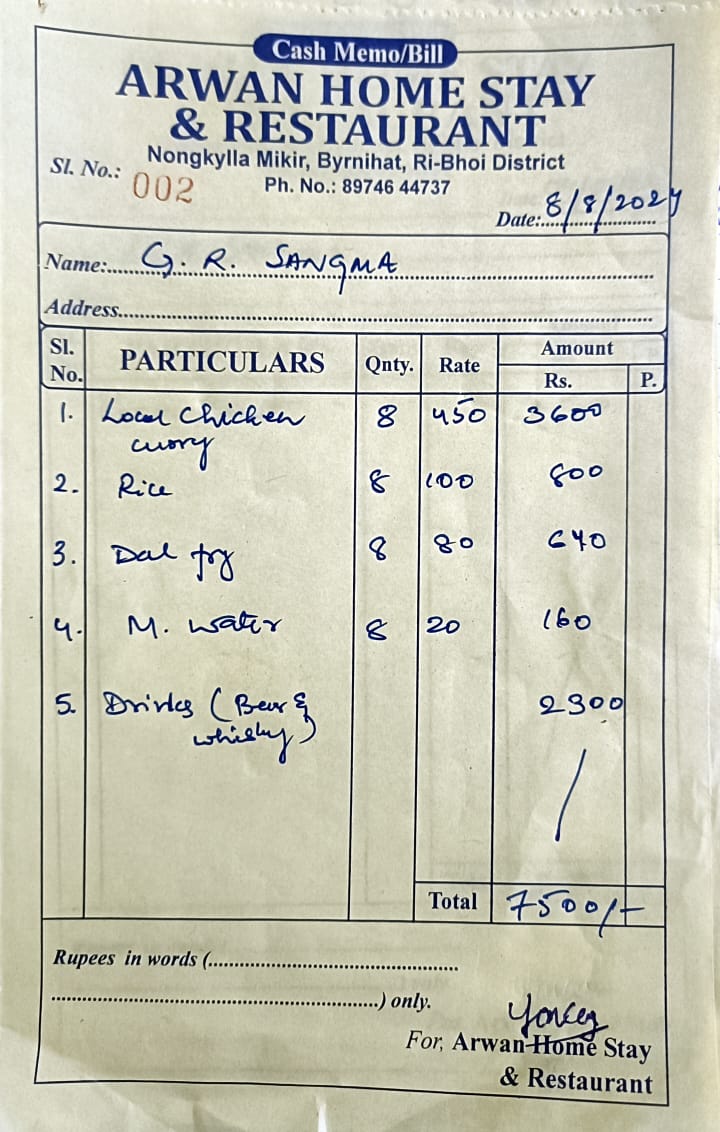 Cash Memo/Bill
ARWAN HOME STAY
& RESTAURANT
Nongkylla Mikir, Byrnihat, Ri-Bhoi District
Sl. No.: 002 Ph. No.: 89746 44737
Date: 8/8/2024
Name: G. R. SANGMA
Address
Sl. No. PARTICULARS Qnty. Rate Amount
Rs. P.
1. Local Chicken 8 450 3600
curry
2. Rice 8 100 800
3. Dal fry 8 80 640
4. M. water 8 20 160
5. Drinks (Bear & 2300
whisky)
Total 7500/-
Rupees in words (
) only.
For, Arwan Home Stay
& Restaurant